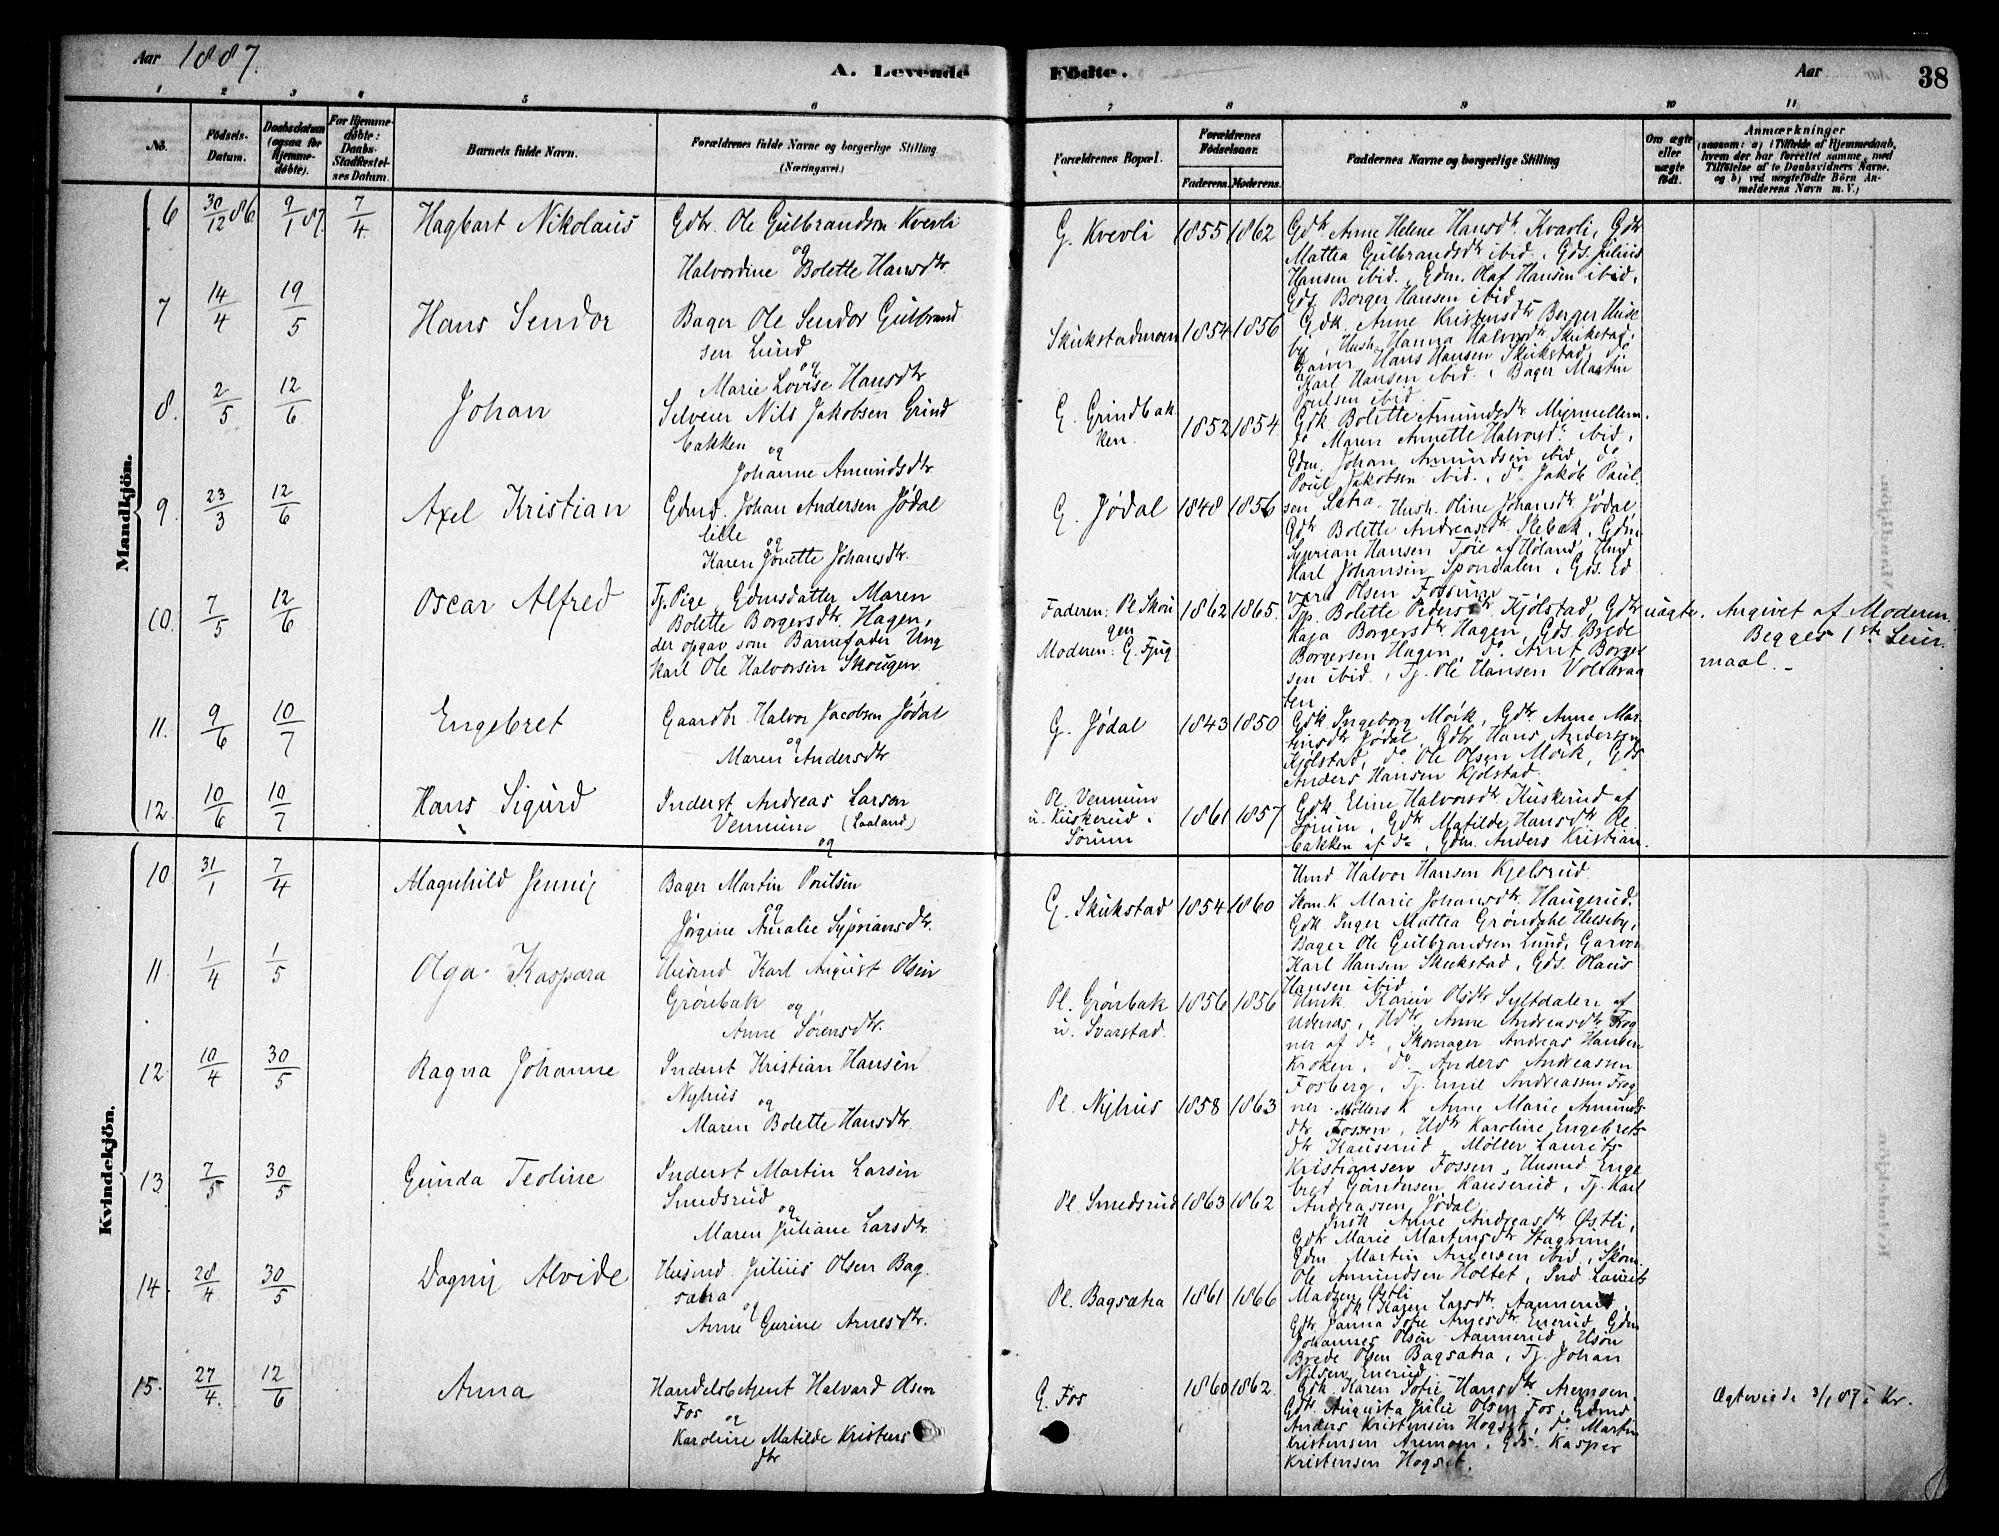 Aar 1887.
A. Levende Födte.
Aar
38
1 2 3 4 5 6 7 8 9 10 11
No. Födsels-Datum. Daabsdatum (ogsaa for Hjemmedöbte). For Hjemmedöbte: Daabs-Stadfæstelses Datum. Barnets fulde Navn. Forældrenes fulde Navne og borgerlige Stilling (Næringsvei.) Forældrenes Bopæl. Forældrenes Födselsaar. Faderens. Moderens. Faddernes Navne og borgerlige Stilling Om ægte eller uægte födt. Anmærkninger (saasom: a) i Tilfælde af Hjemmedaab, hvem der har forrettet samme, med Tilföielse af to Daabsvidners Navne, og b) ved uægtefödte Börn Anmelderens Navn m. V.)
Mandkjön.
6 30/12 86 9/1 87. 7/4 Hagbart Nikolaus
Gdbr. Ole Gulbrandsen Kvevli
og
Halvordine Bolette Hansdtr.
G. Kvevli 1855 1862
Gdk Anne Helene Hansdtr. Kvavli, Gdtr
Mattea Gulbrandsdtr ibid, Gds. Julius
Hansen ibid, Gdm. Olaf Hansen ibid,
Gds. Borger Hansen ibid.
7 14/4 19/5 Hans Sendor
Bager Ole Sendor Gulbrand
sen Lund
og
Marie Lovise Hansdtr
Skukstadmoen 1854 1856
Gdk. Anne Kristensdtr Berger Huse
by, Hush. Hanna Halvorsdtr Skukstad,
Garver Hans Hansen Skukstad, do
Karl Hansen ibid., Bager Martin
Poulsen ibid.
8. 2/5 12/6 Johan
Selveier Nils Jakobsen Grind
bakken
og
Johanne Amundsdtr.
G. Grindbak
ken. 1852 1854
Gdk Bolette Amundsdtr Myrmellem.
do Maren Annette Halvorsdtr ibid,
Gdm. Johan Amundsen ibid, do
Poul Jakobsen ibid., do Jakob Paul
sen Sætra.
9. 23/3 12/6 Axel Kristian
Gdmd. Johan Andersen Jødal
lille
og
Karen Jonette Johansdtr.
G. Jødal 1848 1856
Hush. Oline Johansdtr Jødal,
Gdtr Bolette Andreasdtr Slebak, Gdm
Syprian Hansen Tøie af Høland, Hmd
Karl Johansen Spondalen, Gds. Ed
vard Olsen Fossum
10. 7/5 12/6 Oscar Alfred
Tj. Pige, Gdmsdatter Maren
Bolette Borgersdtr. Hagen,
der opgav som Barnefader Ung
karl Ole Halvorsen Skougen
Faderen: Pl Skou
gen
Moderen: G. Fjug 1862 1865.
Tjp. Bolette Pedersdtr Kjølstad, Gdtr
Kaja Borgersdtr Hagen, Gds. Brede
Borgersen Hagen, do Arnt Borger
sen ibid., Tj. Ole Hansen
uægte. Angivet af Moderen.
Begges 1ste Leier
maal. -
11. 9/6 10/7 Engebret
Gaardbr. Halvor Jacobsen Jødal
og
Maren Andersdtr
G. Jødal 1843 1850
Gdk Ingeborg Mørk, Gdtr Anne Mar
tinsdtr Jødal, Gdbr Hans Andersen
Kjølstad, do Ole Olsen Mørk, Gds
Anders Hansen Kjølstad.
12. 10/6 10/7 Hans Sigurd
Inderst Andreas Larsen
Vennum (Laaland)
og
Pl. Vennum
u. Kuskerud i
Sørum 1861 1857
Gdk Eline Halvorsdtr Kuskerud af
Sørum, Gdk Matilde Hansdtr Re
bakken af do, Gdm. Anders Kristian.
Kvindekjön.
10 31/1 7/4 Magnhild Jenny
Bager Martin Poulsen
og
Jørgine Amalie Syprriansdtr.
G. Skukstad 1854 1860
Hmd Halvor Hansen Kjelsrud.
Skom.k Marie Johansdtr. Haugerud.
Gdk Inger Mattea Grøndahl Helseby,
Bager Ole Gulbrandsen Lund, Garver
Karl Hansen Skukstad, Gds. Olaus
Hansen ibid
11. 1/4 1/5 Olga Kaspara
Husmd Karl August Olsen
Grønbak
og
Anne Sørensdtr.
Pl. Grønbak
u. Svarstad. 1856 1856
Hmk. Karen Olsdtr Syltdalen af
Udenæs, Hdtr Anne Andreasdtr Frog
ner af do, Skomager Andreas Hansen
Kroken, do Anders Andreassen
Fosberg, Tj. Emil Andreassen Frog
ner.
12. 10/4 30/5 Ragna Johanne
Inderst Kristian Hansen
Nyhus
og
Maren Bolette Hansdtr.
Pl. Nyhus 1858 1863
Møllers K Anne Marie Amunds
dtr Fossen, Hdtr Karoline Engebrets
dtr Kauserud, Møller Laurits
Kristiansen Fossen, Husmd Enge
bret Gundersen Kauserud, Tj. Karl
Andreassen Jødal.
13. 7/5 30/5 Gunda Teoline
Inderst Martin Larsen
Smedsrud
og
Maren Juliane Larsdtr.
Pl. Smedsrud 1863 1862
Indk Anne Andreasdtr Østli,
Gdtr Marie Martinsdtr Stagrim,
Gdm Martin Andersen ibid, Skom.
Ole Amundsen Holtet, Ind Laurits
Madsen Østli
14. 28/4 30/5 Dagny Alvide
Husmd. Julius Olsen Bag
sætra
og
Anne Gurine Arnesdtr.
Pl. Bagsætra 1861 1866
Gdk Karen Larsdtr. Aannerud.
Gdtr Janna Sofie Arnesdtr Enerud, Gdm
Johannes Olsen Aannerud, Hsøn
Brede Olsen Bagsætra, Tj. Johan
Nilsen Enerud
15. 27/4. 12/6 Anna
Handelsbetjent Halvard Olsen
Fos
og
Karoline Matilde Kristens
dtr
G. Fos 1860 1862.
Gdk. Karen Sofie Hansdtr. Aremoen.
Gdtr Augusta Julie Olsen Fos, Gdmd
Anders Kristensen Hogset, do Martin
Kristensen Aremoen, Gds. Kasper
Kristensen Hogset.
Ægteviede 3/1 87 i Kr.